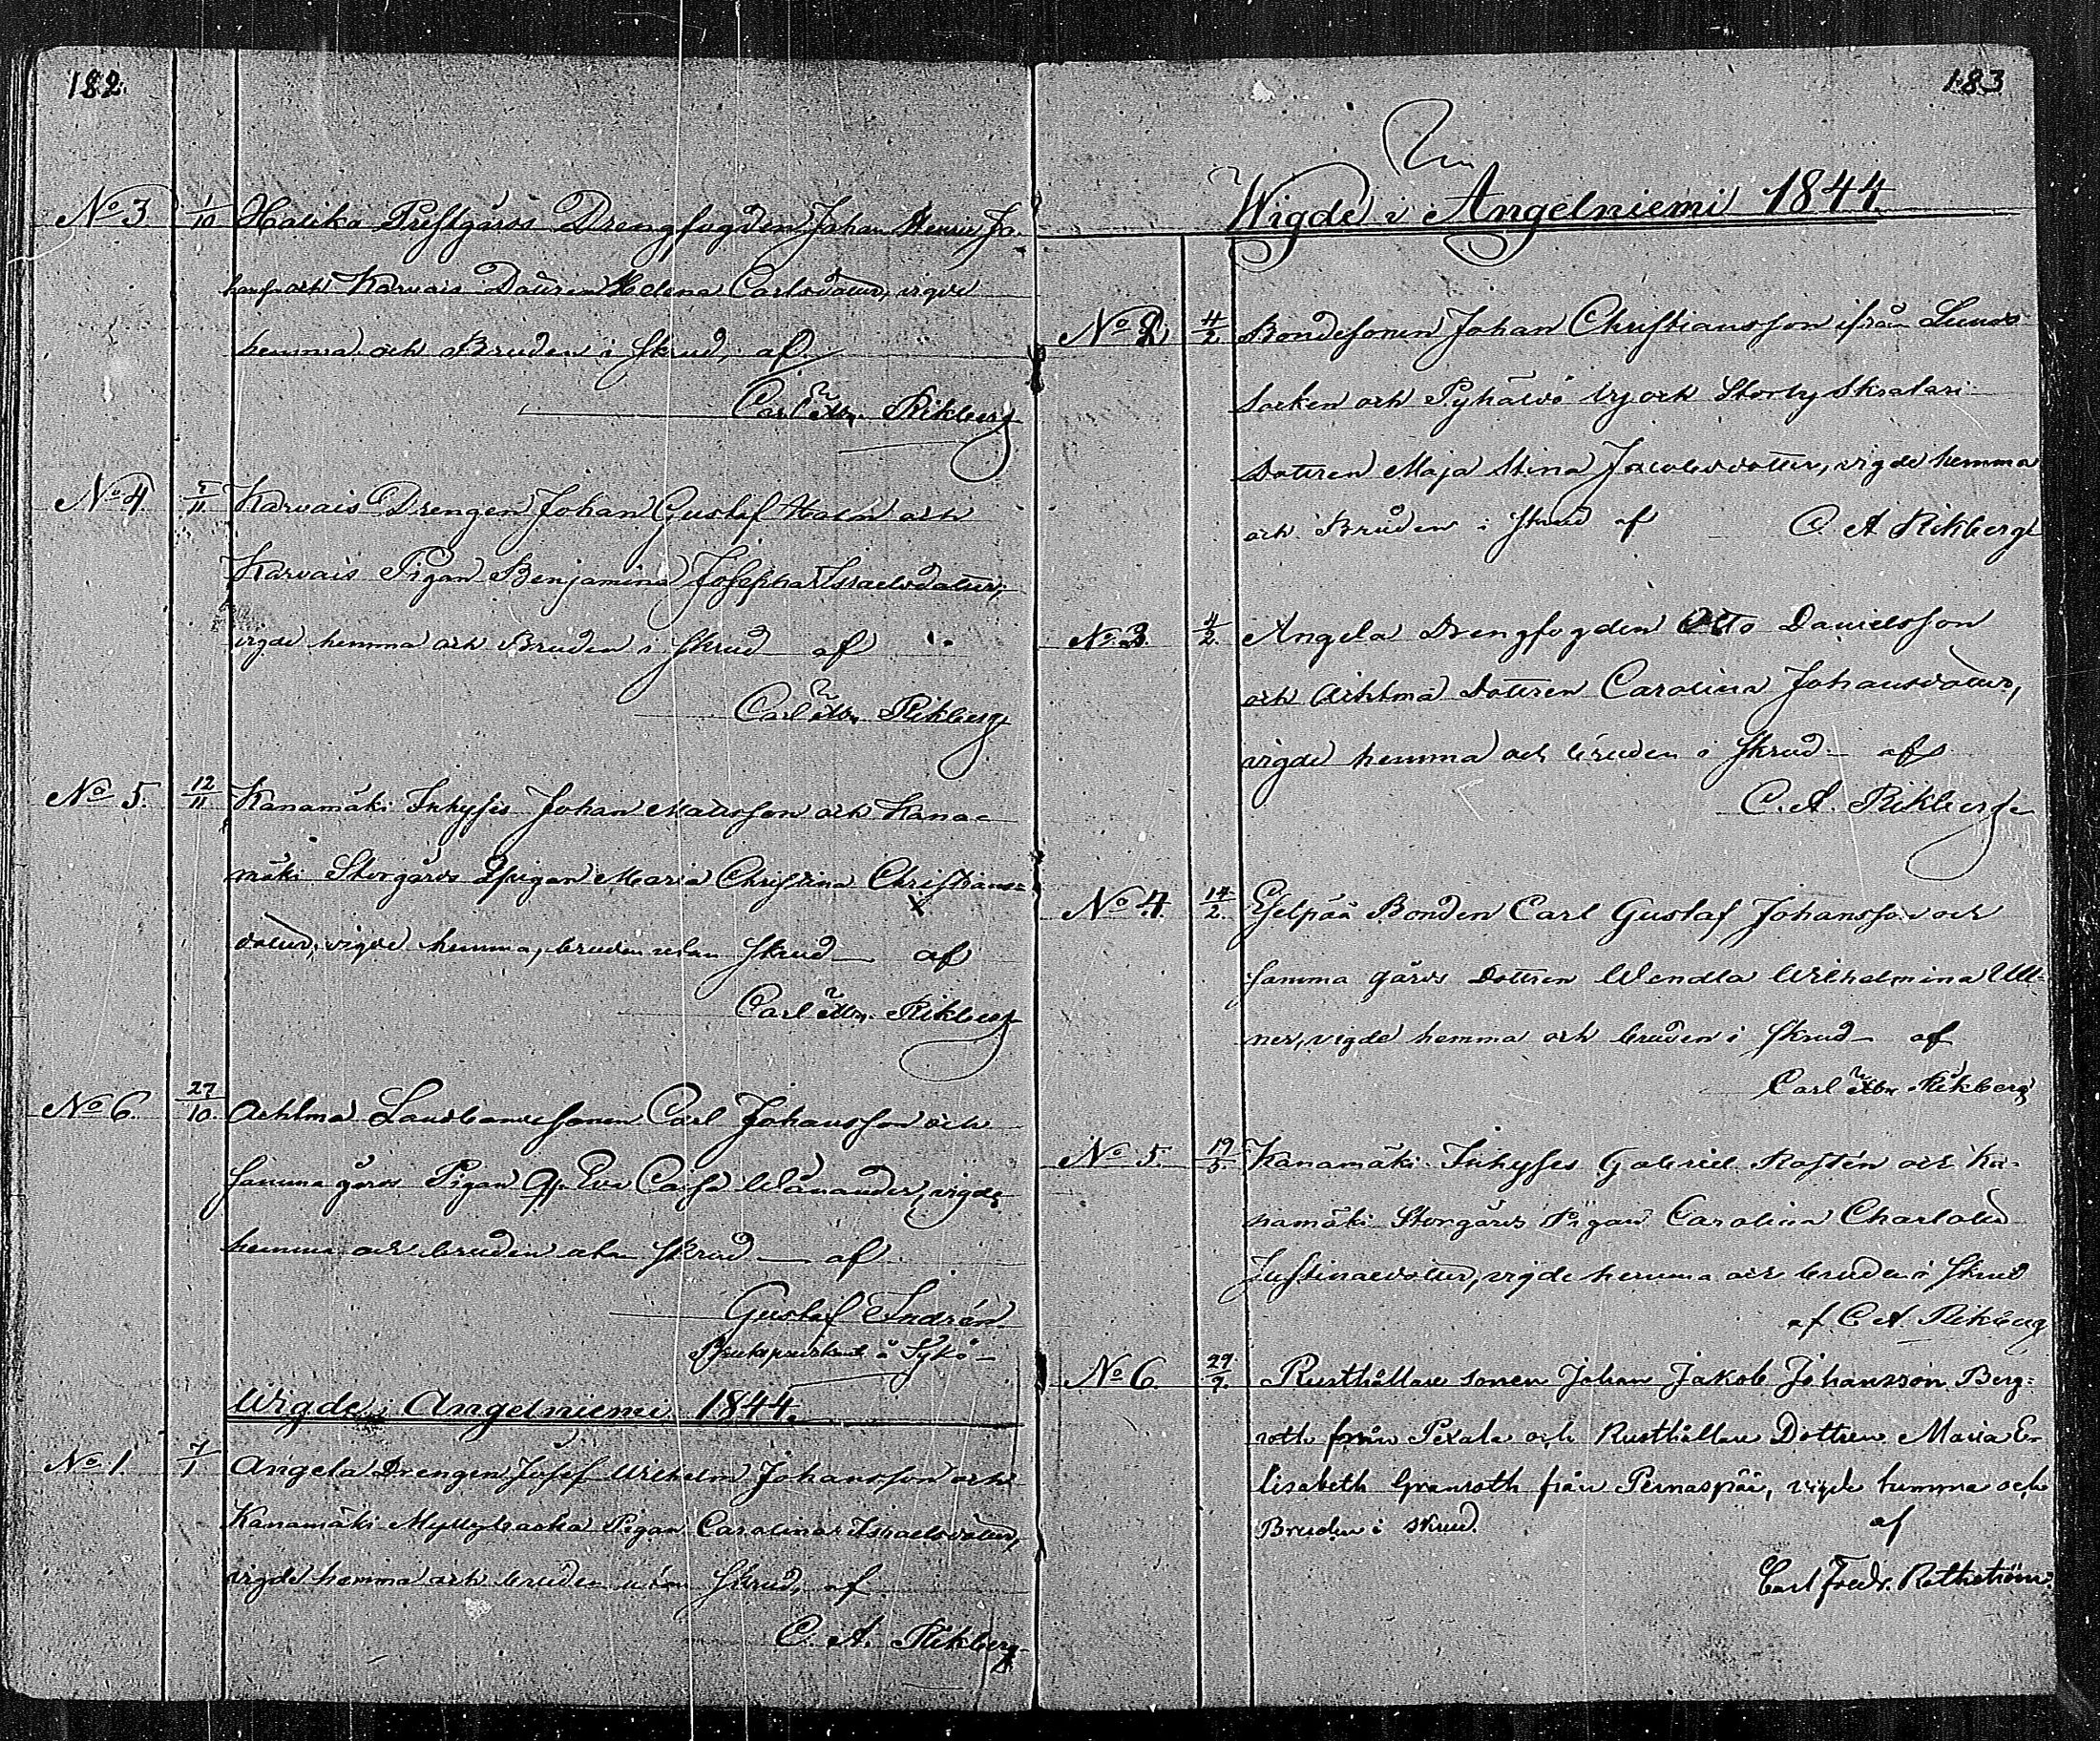 182
No 3 1/10 Haliko Prestgårds Drengfogden Johan Henric Jo-
hansson och Karvais Dottren Helena Carlsdotter, vigde
hemma och Bruden i skrud, af
Carl Abr. Rikberg
No 4 5/11 Karvais Drengen Johan Gustaf Holm och
Karvais Pigan Benjamina Josepha Israelsdotter,
vigde hemma och Bruden i Skrud af
Carl Abr. Rikberg
No 5. 12/11 Kanamäki Inhyses Johan Matsson och Kana-
mäki Storgårds Pigan Maria Christina Christians-
dotter, vigde hemma, bruden utan skrud af
Carl Abr. Rikberg
No 6. 27/10. Achtma Landbondesonen Carl Johansson och
samma gårds Pigan Eva Caisa Wänander, vigde
hemma och bruden utan skrud af
Gustaf Indrén
Brukspredikant å Tykö
Wigde i Angelniemi 1844.
No 1. 7/1 Angela Drengen Josef Wilhelm Johansson och
Kanamäki Myllybacka Pigan Carolina Israelsdotter,
vigde hemma och bruden utan skrud, af
C. A. Rikberg
183
Wigde i Angelniemi 1844
No 2 4/2 Bondesonen Johan Christiansson ifrån
Socken och by och Storby Skratari
Dottren Maja Stina Jacobsdotter, vigde hemma
och Bruden i skrud af C. A Rikberg
No. 3. 4/2. Angela Drengfogden Otto Danielsson
och Achtma Dottren Carolina Johansdotter,
vigde hemma och bruden i skrud af
C. A. Rikberg
No 4. 14/2. Bonden Carl Gustaf Johansson och
samma gårds Dottren Wendla Wilhelmina Ull-
ner, vigde hemma och bruden i skrud af
Carl Abr. Rikberg
No 5. 19/5. Kanamäki Inhyses Gabriel Rostén och Ka-
namäki Storgårds Pigan Carolina Charlotta
Justinaedotter, vigde hemma och bruden i skrud
af C. A. Rikberg
No 6. 29/9. Rusthållare sonen Johan Jakob Johansson Berg-
roth från Pexala och Rusthållare Dottren Maria E-
lisabeth Granroth från Pernaspää, vigde hemma och
Bruden i skrud. af
Carl Fredr. Rothström.